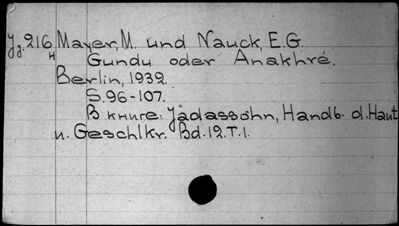 Jj.216 Mayer, M. und Nauck, E.G.
н Gundu oder Anakhré.
Berlin, 1932.
S.96-107.
В книге: Jadassohn, Handb. d. Haut
u. Geschlkr. Bd.12.T.1.